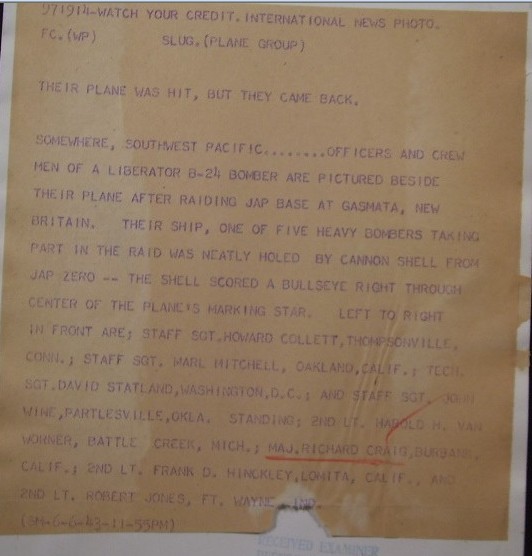 971914-WATCH YOUR CREDIT. INTERNATIONAL NEWS PHOTO.
FC.(WP) SLUG.(PLANE GROUP)
THEIR PLANE WAS HIT, BUT THEY CAME BACK.
SOMEWHERE, SOUTHWEST PACIFIC........OFFICERS AND CREW
MEN OF A LIBERATOR B-24 BOMBER ARE PICTURED BESIDE
THEIR PLANE AFTER RAIDING JAP BASE AT GASMATA, NEW
BRITAIN. THEIR SHIP, ONE OF FIVE HEAVY BOMBERS TAKING
PART IN THE RAID WAS NEATLY HOLED BY CANNON SHELL FROM
JAP ZERO -- THE SHELL SCORED A BULLSEYE RIGHT THROUGH
CENTER OF THE PLANE'S MARKING STAR. LEFT TO RIGHT
IN FRONT ARE; STAFF SGT.HOWARD COLLETT,THOMPSONVILLE,
CONN.; STAFF SGT. MARL MITCHELL, OAKLAND,CALIF.; TECH.
SGT.DAVID STATLAND,WASHINGTON,D.C.; AND STAFF SGT. JOHN
WINE,PARTLESVILLE,OKLA. STANDING; 2ND LT. HAROLD H. VAN
WORMER, BATTLE CREEK, MICH.; MAJ.RICHARD CRAIG,BURBANK,
CALIF.; 2ND LT. FRANK D. HINCKLEY,LOMITA, CALIF., AND
2ND LT. ROBERT JONES, FT. WAYNE, IND.
(SM-6-6-43-11-55PM)
RECEIVED EXAMINER